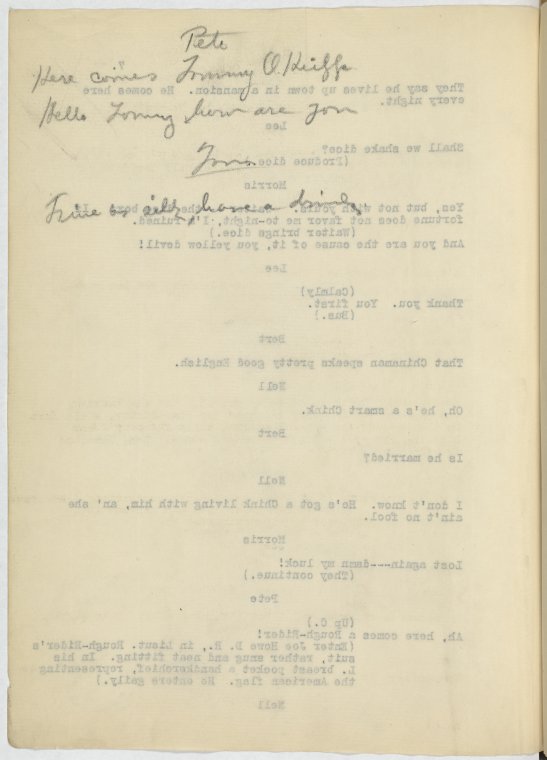 Pete
Here comes Tommy
Hello Tommy, how are you
Tom.
Fine as silk, have a drink.
7
They say he lives up town in a mansion. He comes here
every night.
Lee
Shall we shake dice?
(Produce dice.)
Morris
Yes, but not with yours. the box. If
fortune does not favor me to-night, I'm ruined.
(Waiter brings dice.)
And you are the cause of it, you yellow devil!
Lee
(Calmly)
Thank you. You first.
(Bus.)
Bert
That Chinaman speaks pretty good English.
Nell
Oh, he's a smart Chink.
Bert
Is he married?
Nell
I don't know. He's got a Chink living with him, an' she
ain't no fool.
Morris
Lost again---damn my luck!
(They continue.)
Pete
(Up C.)
Ah, here comes a Rough-Rider!
(Enter Joe Howe D. R., in Lieut. Rough-Rider's
suit, rather snug and neat fitting. In his
L. breast pocket a handkerchief, representing
the American flag. He enters gaily.)
Nell